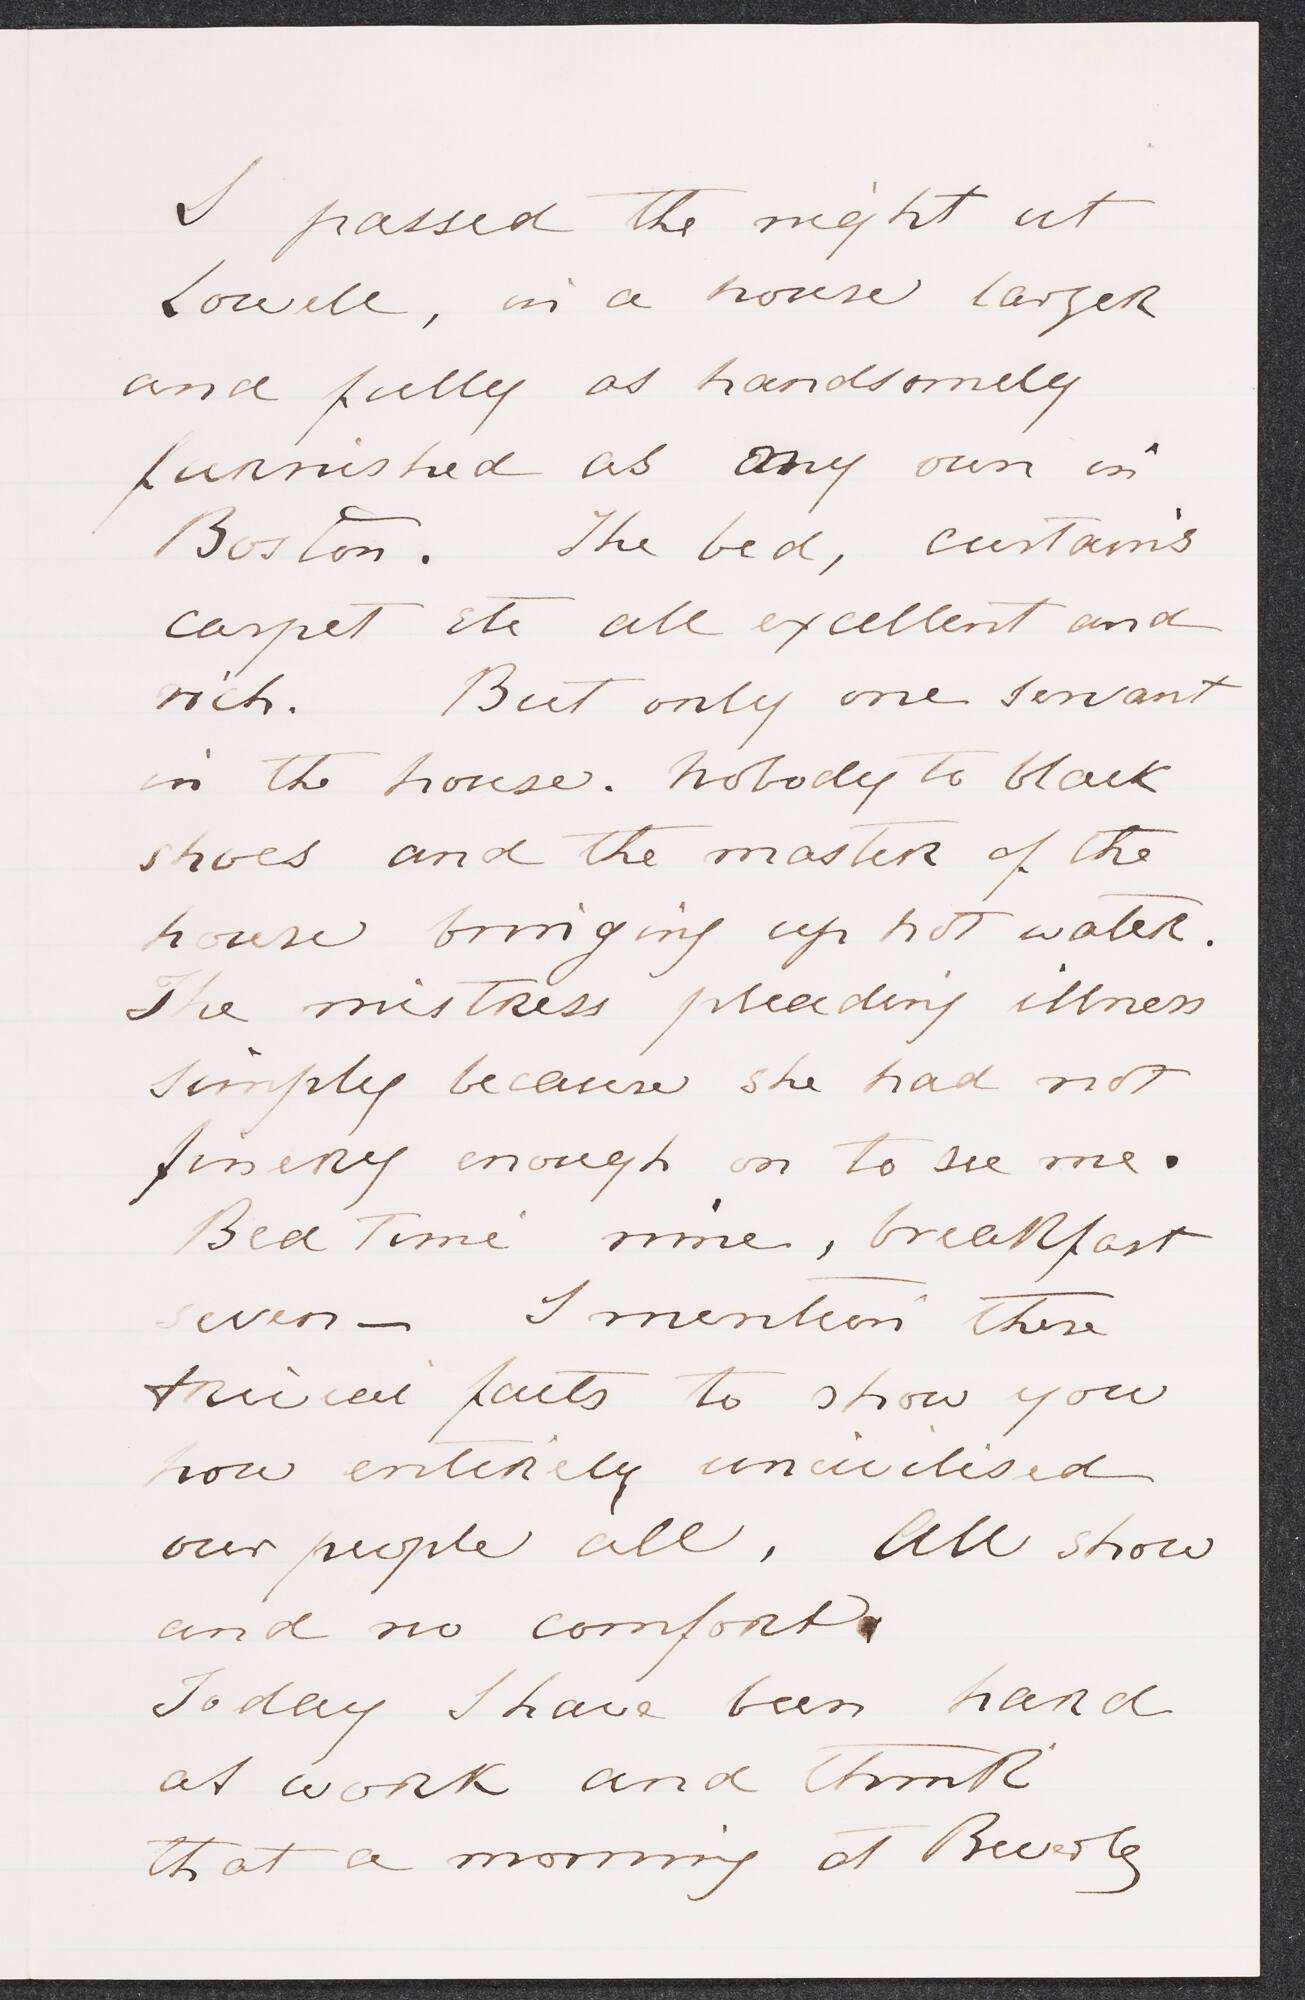 I passed the night at
Lowell, in a house larger
and fully as handsomely
furnished as any own in
Boston. The bed, curtains
carpet etc all excellent and
rich. But only one servant
in the house. Nobody to black
shoes and the master of the
house bringing up hot water.
The mistress pleading illness
simply because she had not
finery enough on to see me.
Bed time nine, breakfast
seven — I mention these
trivial facts to show you
how entirely uncivilised
our people all, All show
and no comfort.
Today I have been hard
at work and think
that a morning at Beverly